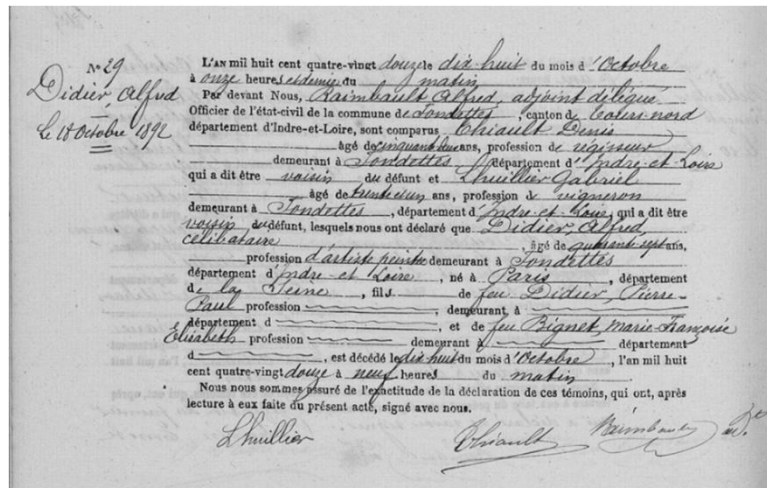 N° 29
Didier, Alfred
le 18 Octobre 1892
L'AN mil huit cent quatre-vingt douze le dix huit du mois d'Octobre
à onze heures et demie du matin
Par devant Nous, Raimbault Alfred, adjoint délégué
Officier de l'état-civil de la commune de Fondettes, canton de Tours-nord
département d'Indre-et-Loire, sont comparus Thiault Denis
âgé de cinquante deux ans, profession de régisseur
demeurant à Fondettes, département d'Indre-et-Loire
qui a dit être voisin du défunt et Lhuillier Gabriel
âgé de trente et un ans, profession de vigneron
demeurant à Fondettes, département d'Indre-et-Loire, qui a dit être
voisin du défunt, lesquels nous ont déclaré que Didier, Alfred,
célibataire, âgé de quarante sept ans,
profession d'artiste peintre demeurant à Fondettes
département d'Indre et Loire, né à Paris, département
de la Seine, fils de feu Didier, Pierre-
Paul profession, demeurant à
département d, et de feu Bignet, Marie Françoise
Elisabeth profession demeurant à département
d, est décédé le dix huit du mois d'Octobre, l'an mil huit
cent quatre-vingt douze à neuf heures du matin
Nous nous sommes assuré de l'exactitude de la déclaration de ces témoins, qui ont, après
lecture à eux faite du présent acte, signé avec nous.
Lhuillier Thiault Raimbault